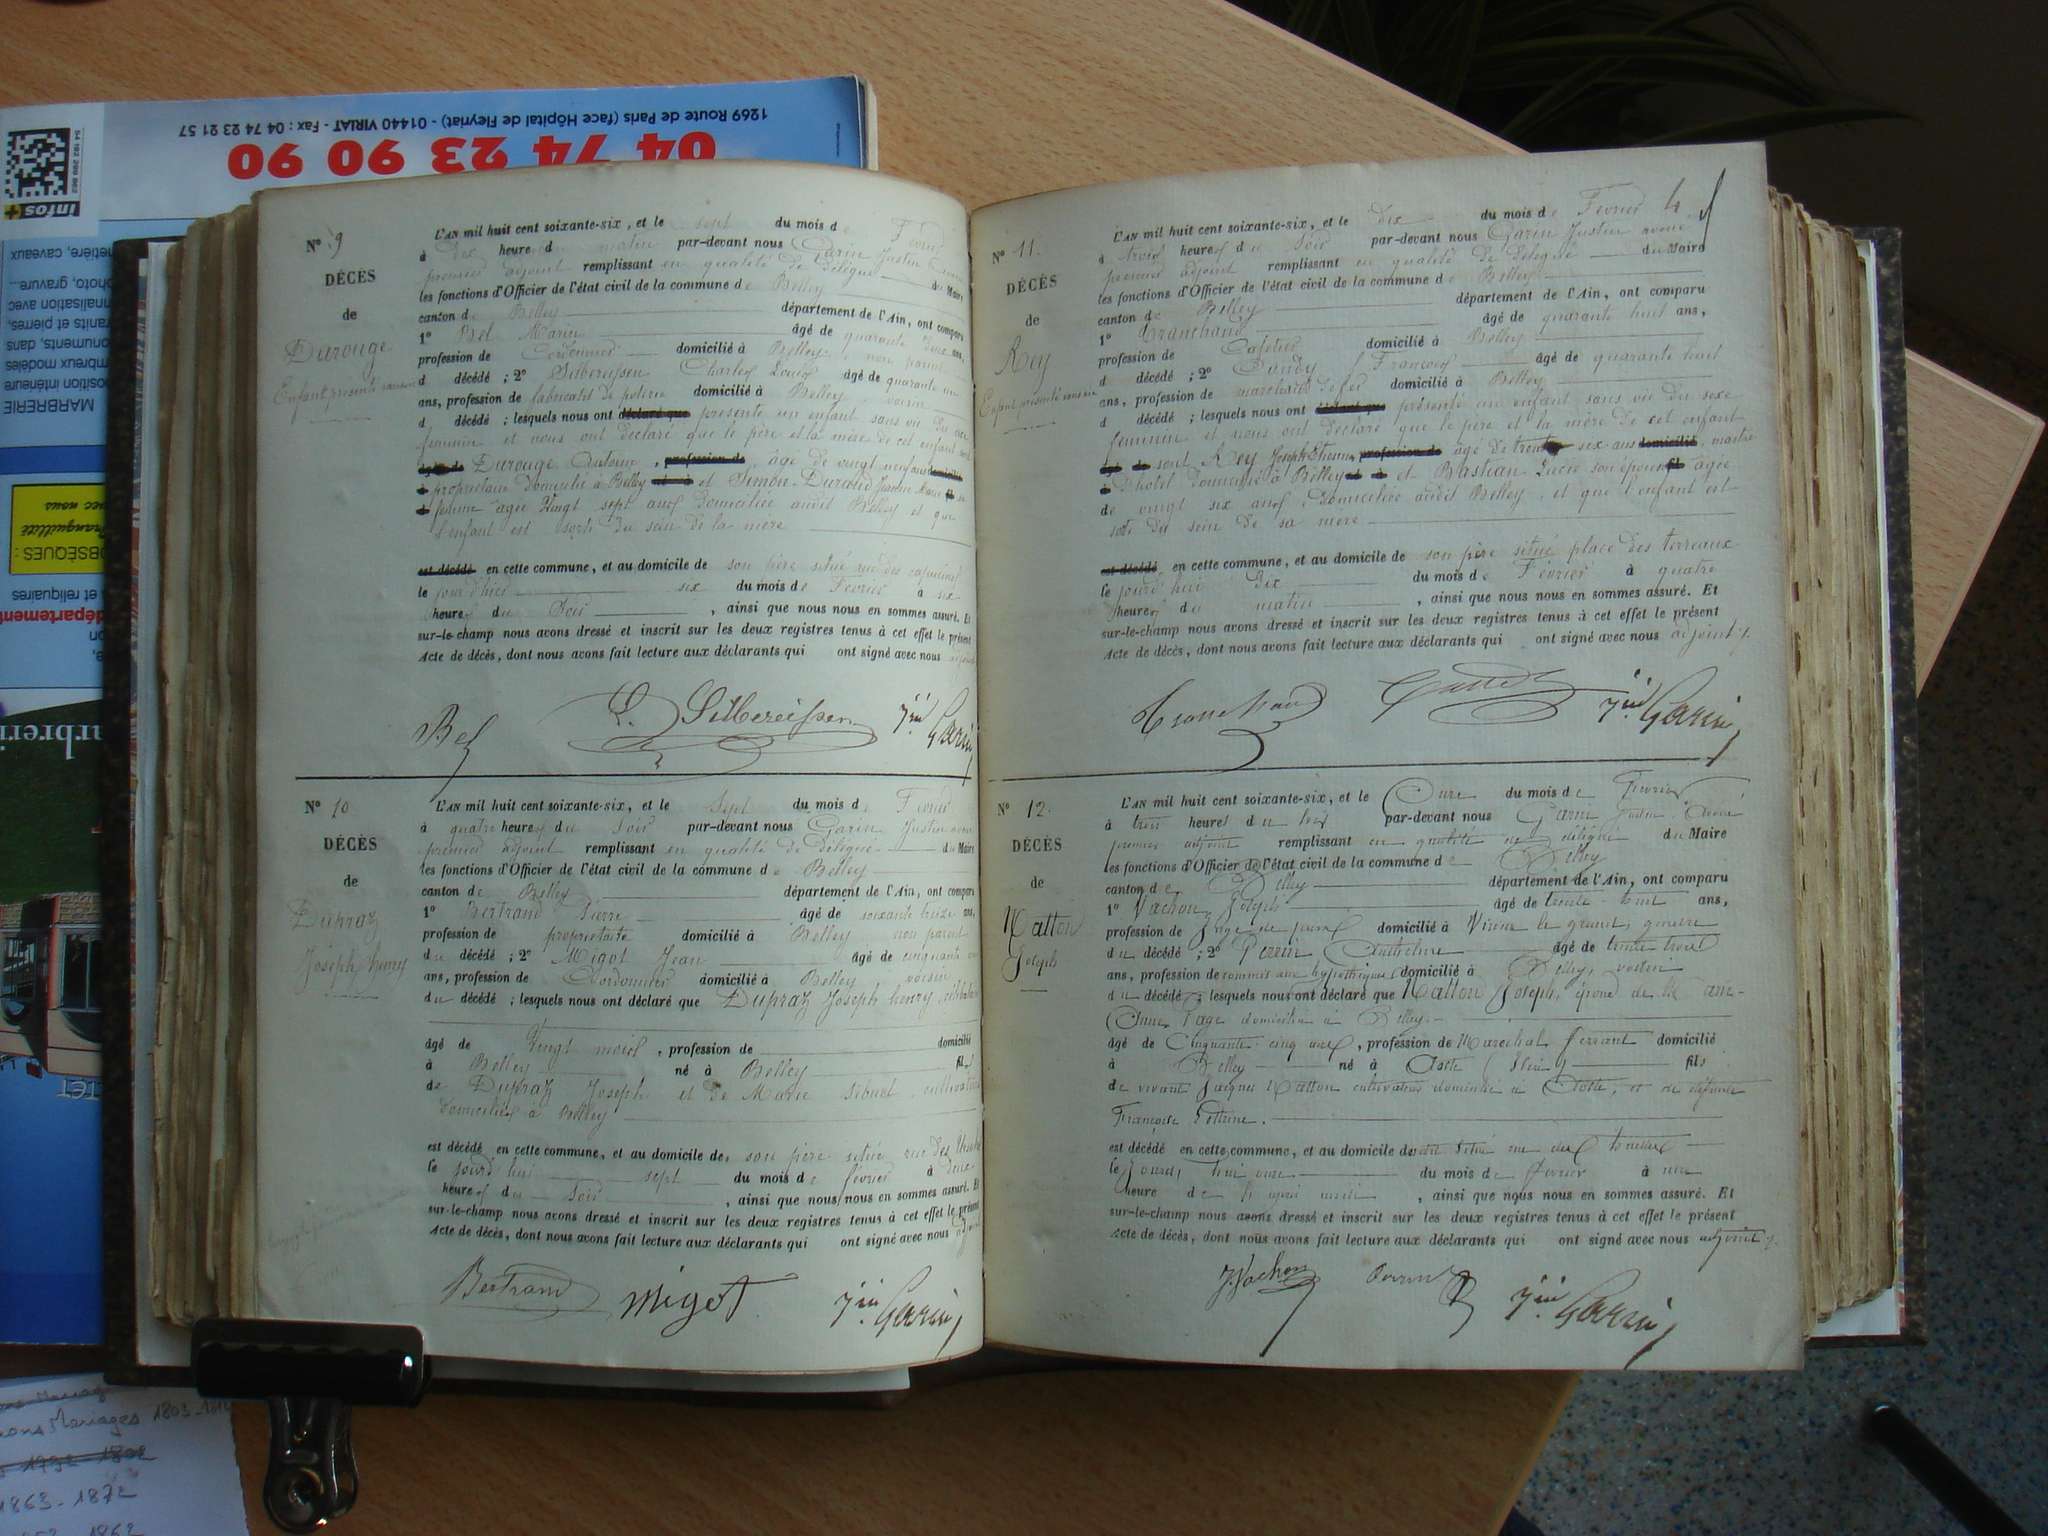 1269 Route de Paris (face Hôpital de Fleyriat) - 01440 VIRIAT - Fax : 04 74 23 21 57
04 74 23 90 90
infos+
MARBRERIE
OBSÈQUES :
Tranquillité
avec nous
et reliquaires
département
N° 9
DÉCÈS
de
Durouge
Enfant présenté sans vie
L'AN mil huit cent soixante-six, et le sept du mois de Février
à dix heures du matin par-devant nous Garin Justin avoué
premier adjoint remplissant en qualité de délégué du Maire
les fonctions d'Officier de l'état civil de la commune de Belley
canton de Belley département de l'Ain, ont comparu
1° Bel Marin âgé de quarante deux ans,
profession de Cordonnier domicilié à Belley, non parent
d décédé ; 2° Silbereissen Charles Louis âgé de quarante un
ans, profession de fabricant de poterie domicilié à Belley voisin
d décédé ; lesquels nous ont déclaré que présenté un enfant sans vie du sexe
féminin et nous ont déclaré que le père et la mère de cet enfant sont
âgé de Durouge Antoine, profession de âgé de vingt neuf ans domicilié
à propriétaire domicilié à Belley et Simon-Durand Jeanne Marie sa
femme âgée vingt sept ans domiciliée audit Belley et que
l'enfant est sorti du sein de la mère
est décédé en cette commune, et au domicile de son père situé rue des capucins
le jour d'hier six du mois de Février à six
heures du Soir, ainsi que nous nous en sommes assuré. Et
sur-le-champ nous avons dressé et inscrit sur les deux registres tenus à cet effet le présent
Acte de décès, dont nous avons fait lecture aux déclarants qui ont signé avec nous adjoint
Bel Silbereissen Jin Garin
N° 10
DÉCÈS
de
Dupraz
Joseph henry
L'AN mil huit cent soixante-six, et le Sept du mois de Février
à quatre heures du Soir par-devant nous Garin Justin avoué
premier adjoint remplissant en qualité de délégué du Maire
les fonctions d'Officier de l'état civil de la commune de Belley
canton de Belley département de l'Ain, ont comparu
1° Bertrand Pierre âgé de soixante treize ans,
profession de propriétaire domicilié à Belley non parent
du décédé ; 2° Migot Jean âgé de cinquante
ans, profession de Cordonnier domicilié à Belley voisin
du décédé ; lesquels nous ont déclaré que Dupraz Joseph henry, célibataire
âgé de Vingt mois, profession de domicilié
à Belley né à Belley fils
de Dupraz Joseph et de Marie Sibuet, cultivateurs
domiciliés à Belley
est décédé en cette commune, et au domicile de son père située rue des
le jourd'hui sept du mois de février à deux
heures du Soir, ainsi que nous nous en sommes assuré. Et
sur-le-champ nous avons dressé et inscrit sur les deux registres tenus à cet effet le présent
Acte de décès, dont nous avons fait lecture aux déclarants qui ont signé avec nous adjoint
Bertrand Migot Jin Garin
N° 11.
DÉCÈS
de
Rey
Enfant présenté sans vie
L'AN mil huit cent soixante-six, et le dix du mois de Février
à trois heures du Soir par-devant nous Garin Justin avoué
premier adjoint remplissant en qualité de délégué du Maire
les fonctions d'Officier de l'état civil de la commune de Belley
canton de Belley département de l'Ain, ont comparu
1° Tranchand âgé de quarante huit ans,
profession de Cafetier domicilié à Belley
d décédé ; 2° François âgé de quarante huit
ans, profession de marchand de fer domicilié à Belley
d décédé ; lesquels nous ont déclaré que présenté un enfant sans vie du sexe
féminin et nous ont déclaré que le père et la mère de cet enfant
âgé de sont Rey Joseph Etienne profession de âgé de trente six ans domicilié maître
à D'hotel domicilié à Belley et Bastian Lucie son épouse fils âgée
de vingt six ans domiciliée audit Belley, et que l'enfant est
sorti du sein de sa mère
est décédé en cette commune, et au domicile de son père situé place des terreaux
le jourd'hui dix du mois de Février à quatre
heures du matin, ainsi que nous nous en sommes assuré. Et
sur-le-champ nous avons dressé et inscrit sur les deux registres tenus à cet effet le présent
Acte de décès, dont nous avons fait lecture aux déclarants qui ont signé avec nous adjoint
Tranchand Jin Garin
N° 12.
DÉCÈS
de
Matton
Joseph
L'AN mil huit cent soixante-six, et le Onze du mois de Février
à trois heures du soir par-devant nous Garin Justin Avoué
premier adjoint remplissant en qualité de délégué du Maire
les fonctions d'Officier de l'état civil de la commune de Belley
canton de Belley département de l'Ain, ont comparu
1° Vachon Joseph âgé de trente huit ans,
profession de Juge de paix domicilié à Virieu le grand, gendre
du décédé ; 2° Perrin Anthelme âgé de trente trois
ans, profession de commis aux hypothèques domicilié à Belley, voisin
du décédé ; lesquels nous ont déclaré que Matton Joseph, époux de
domicilié à Belley
âgé de Cinquante cinq ans, profession de Maréchal ferrant domicilié
à Belley né à Aoste (Isère) fils
de vivant Jacques Matton cultivateur domicilié à Aoste, et de défunte
Françoise
est décédé en cette commune, et au domicile de situé rue des terreaux
le jourd'hui onze du mois de février à une
heure de l'après midi, ainsi que nous nous en sommes assuré. Et
sur-le-champ nous avons dressé et inscrit sur les deux registres tenus à cet effet le présent
Acte de décès, dont nous avons fait lecture aux déclarants qui ont signé avec nous adjoint
J. Vachon Perrin Jin Garin
Mariages 1803-
1792 1802
1863 - 1872
1862